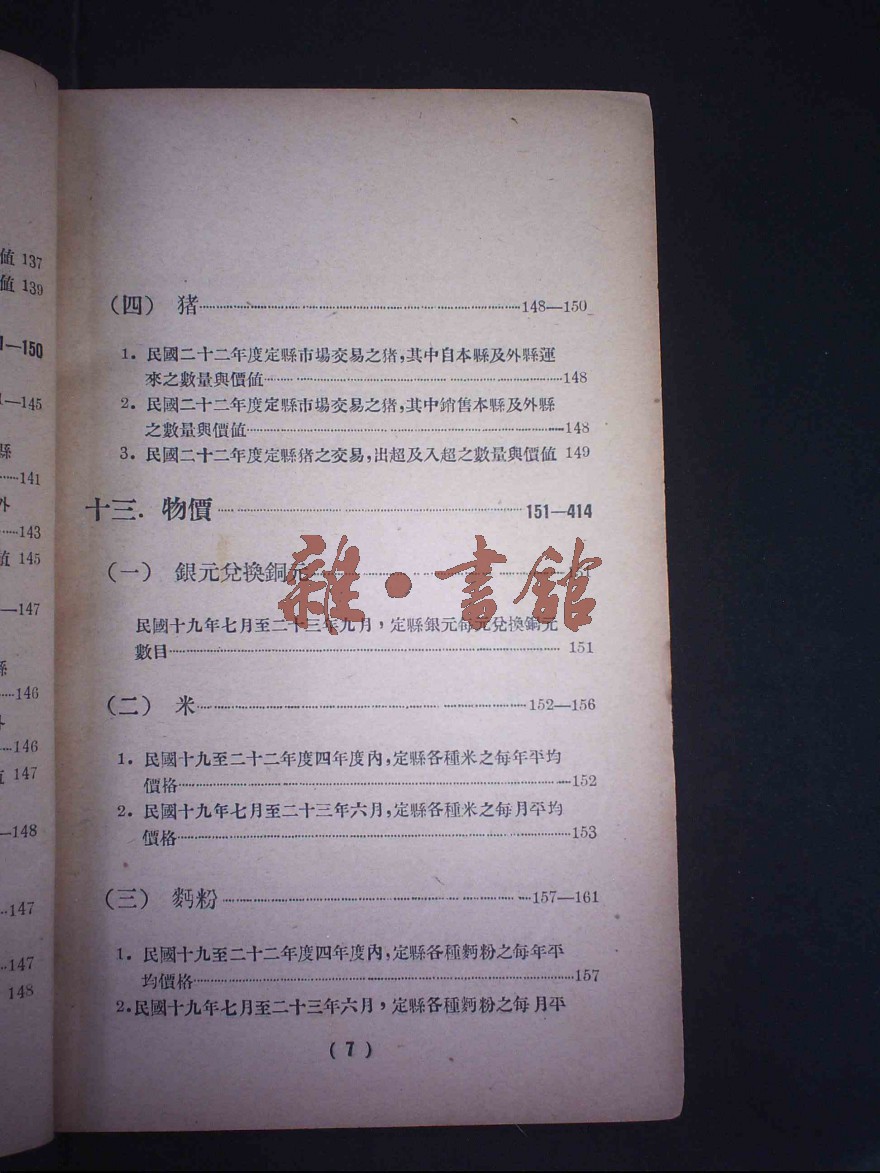 值 137
值 139
—150
—145
縣
141
外
143
值 145
—147
縣
146
146
147
—148
147
147
148
(四) 猪……148—150
1. 民國二十二年度定縣市場交易之猪,其中自本縣及外縣運
來之數量與價值……148
2. 民國二十二年度定縣市場交易之猪,其中銷售本縣及外縣
之數量與價值……148
3. 民國二十二年度定縣猪之交易,出超及入超之數量與價值 149
十三. 物價……151—414
(一) 銀元兌換銅元……
雜·書館
民國十九年七月至二十三年九月,定縣銀元每元兌換銅元
數目……151
(二) 米……152—156
1. 民國十九至二十二年度四年度內,定縣各種米之每年平均
價格……152
2. 民國十九年七月至二十三年六月,定縣各種米之每月平均
價格……153
(三) 麪粉……157—161
1. 民國十九至二十二年度四年度內,定縣各種麪粉之每年平
均價格……157
2. 民國十九年七月至二十三年六月,定縣各種麪粉之每月平
(7)